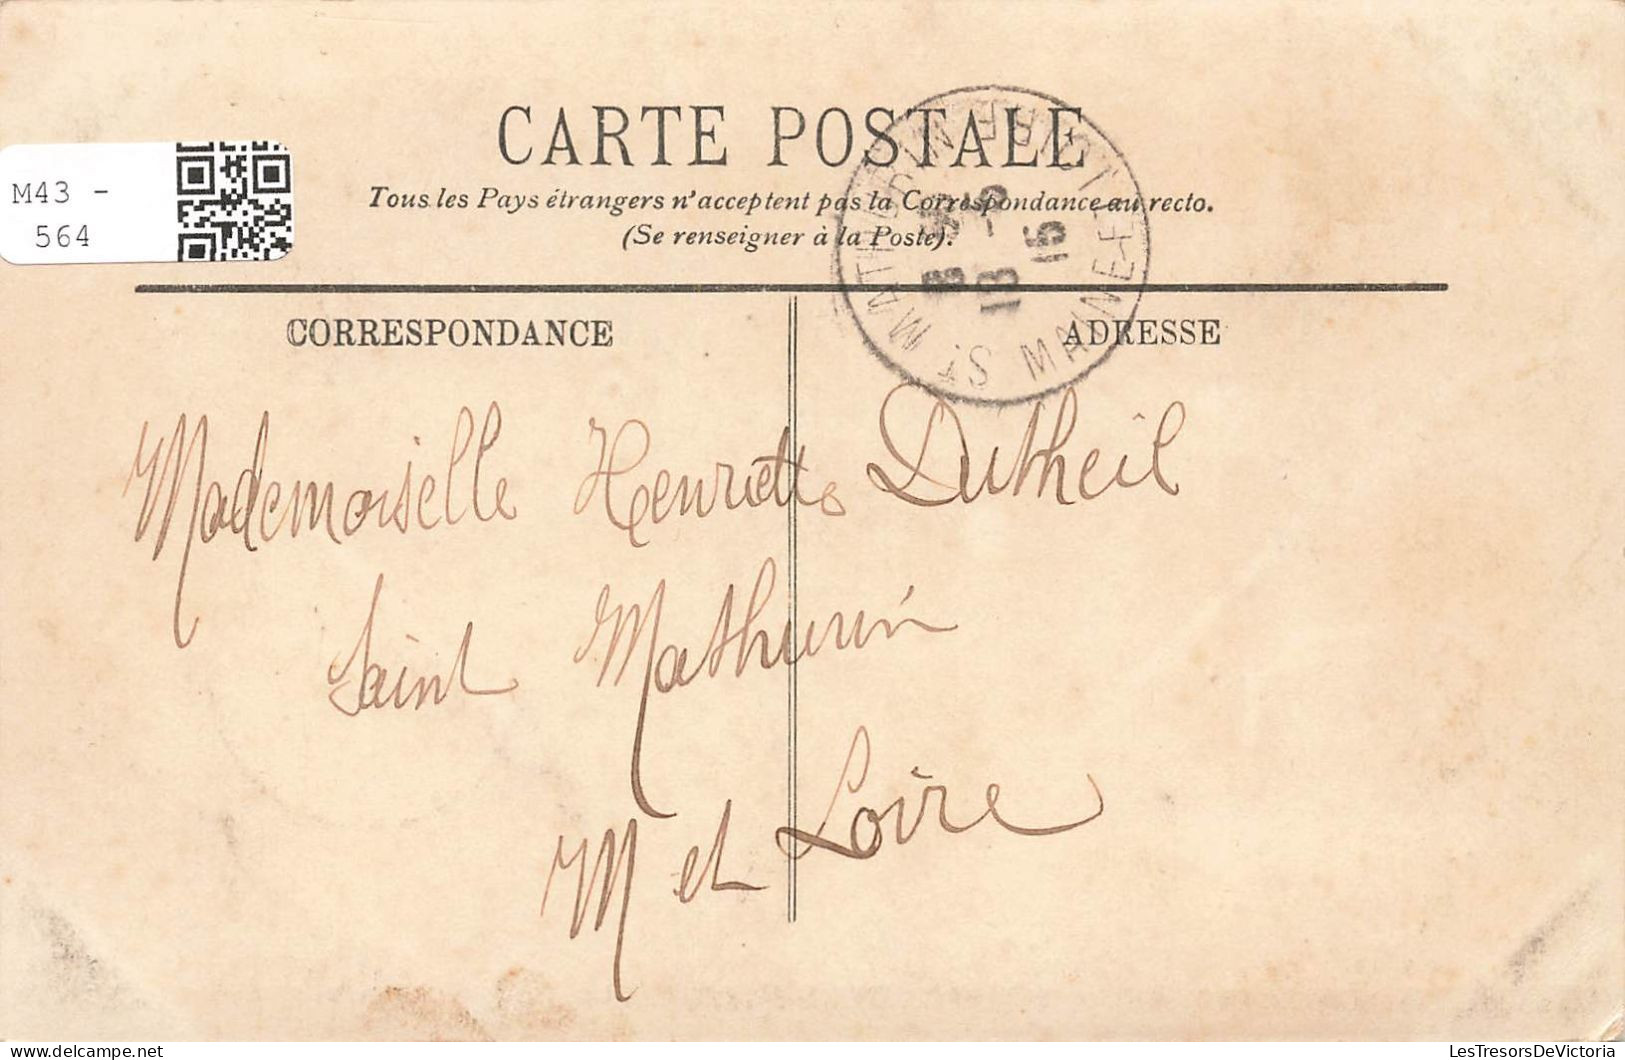 CARTE POSTALE
Tous les Pays étrangers n'acceptent pas la Correspondance au recto.
(Se renseigner à la Poste).
M43 -
564
CORRESPONDANCE
ADRESSE
ST MATHURIN
MAINE-ET-LOIRE
18 -5
15
Mademoiselle Henriette Dutheil
Saint Mathurin
M et Loire
LesTresorsDeVictoria